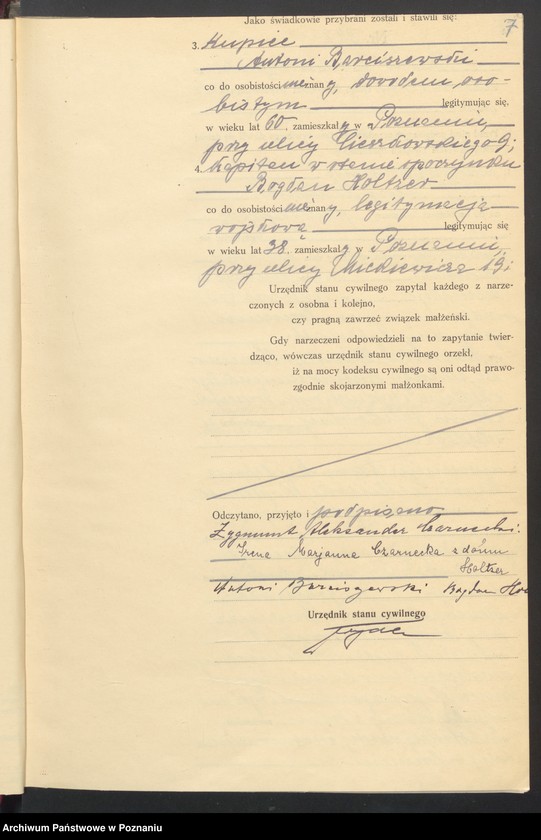 7
Jako świadkowie przybrani zostali i stawili się:
3. Kupiec
Antoni Barciszewski
co do osobistości nieznany, dowodem oso-
bistym legitymując się,
w wieku lat 60, zamieszkały w Poznaniu,
przy ulicy Cieszkowskiego 9;
4. Kapitan w stanie spoczynku
Bogdan Holtzer
co do osobistości nieznany, legitymacją
wojskową legitymując się
w wieku lat 38, zamieszkały w Poznaniu,
przy ulicy Mickiewicza 19;
Urzędnik stanu cywilnego zapytał każdego z narze-
czonych z osobna i kolejno,
czy pragną zawrzeć związek małżeński.
Gdy narzeczeni odpowiedzieli na to zapytanie twier-
dząco, wówczas urzędnik stanu cywilnego orzekł,
iż na mocy kodeksu cywilnego są oni odtąd prawo-
zgodnie skojarzonymi małżonkami.
Odczytano, przyjęto i podpisano
Zygmunt Aleksander Czarnecki.
Irena Marjanna Czarnecka z domu
Holtzer
Antoni Barciszewski Bogdan Ho
Urzędnik stanu cywilnego
Archiwum Państwowe w Poznaniu